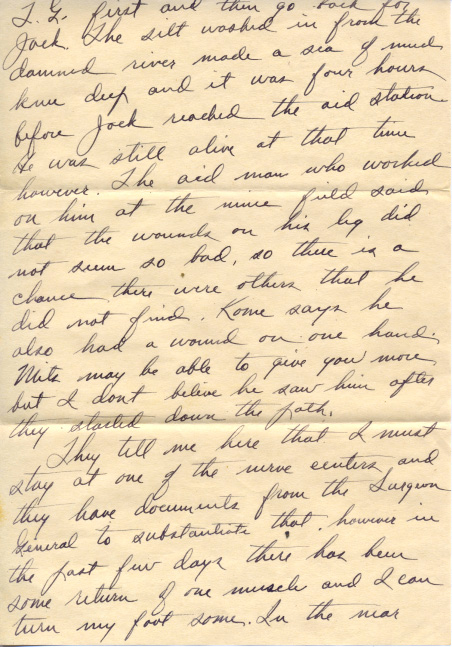 T. G. first and then go back for
Jack. The silt washed in from the
damned river made a sea of mud
knee deep and it was four hours
before Jack reached the aid station
He was still alive at that time
however. The aid man who worked
on him at the mine field said
that the wounds on his leg did
not seem so bad, so there is a
chance there were others that he
did not find. Kome says he
also had a wound on one hand.
Mits may be able to give you more
but I dont belive he saw him after
they started down the path.
They tell me here that I must
stay at one of the nerve centers and
they have documents from the Surgeon
General to substantiate that, however in
the past few days there has been
some return of one muscle and I can
turn my foot some. In the near